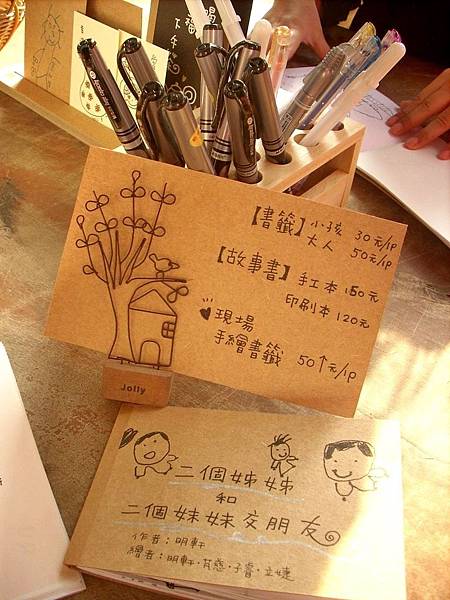 【書籤】小孩 30元/1P
大人 50元/1P
【故事書】手工本 150元
印刷本 120元
現場
手繪書籤 50↑元/1P
Jolly
二個姊姊
和
二個妹妹交朋友
作者:明軒
繪者:明軒·芃慈·子睿·立婕